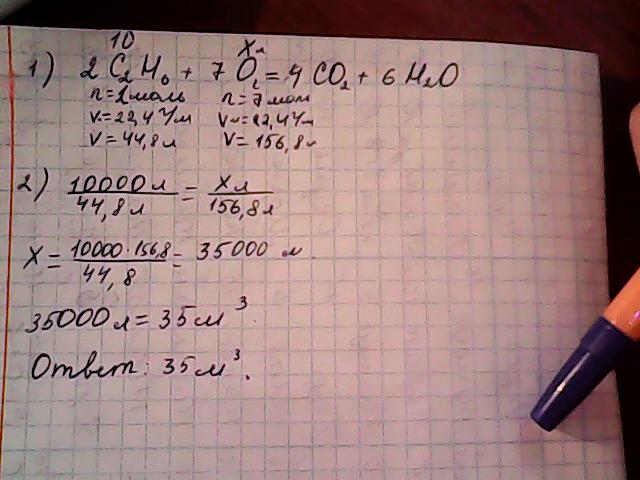 10 Xл
1) 2 C₂H₆ + 7 O₂ = 4 CO₂ + 6 H₂O
n = 2 моль n = 7 мол
Vм = 22,4 л/м Vм = 22,4 л/м
V = 44,8 л V = 156,8 л
2) 10000 л / 44,8 л = X л / 156,8 л
X = 10000 · 156,8 / 44,8 = 35000 л
35000 л = 35 м³.
Ответ: 35 м³.